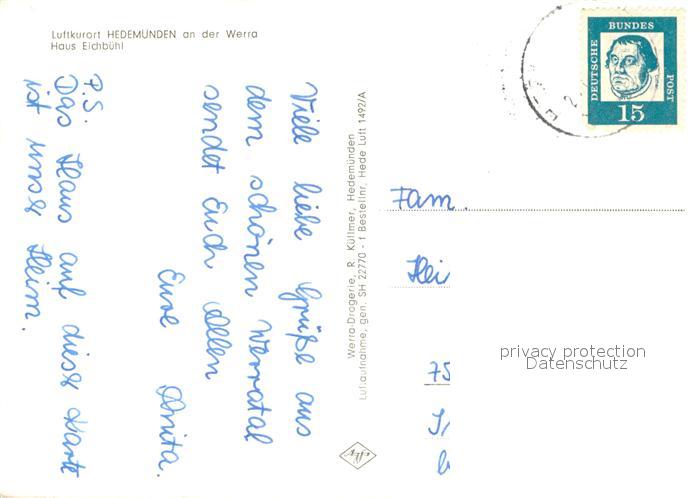 Luftkurort HEDEMÜNDEN an der Werra
Haus Eichbühl
Viele liebe Grüße aus
dem schönen Werratal
sendet Euch Allen
Eure Anita.
P.S.
Das Haus auf dieser Karte
ist unser Heim.
Werra-Drogerie, R. Küllmer, Hedemünden
Luftaufnahme, gen. SH 22770 - 1 Bestellnr. Hede Luft 1492/A
DEUTSCHE
BUNDES
POST
15
Fam.
Hei
75
privacy protection
Datenschutz